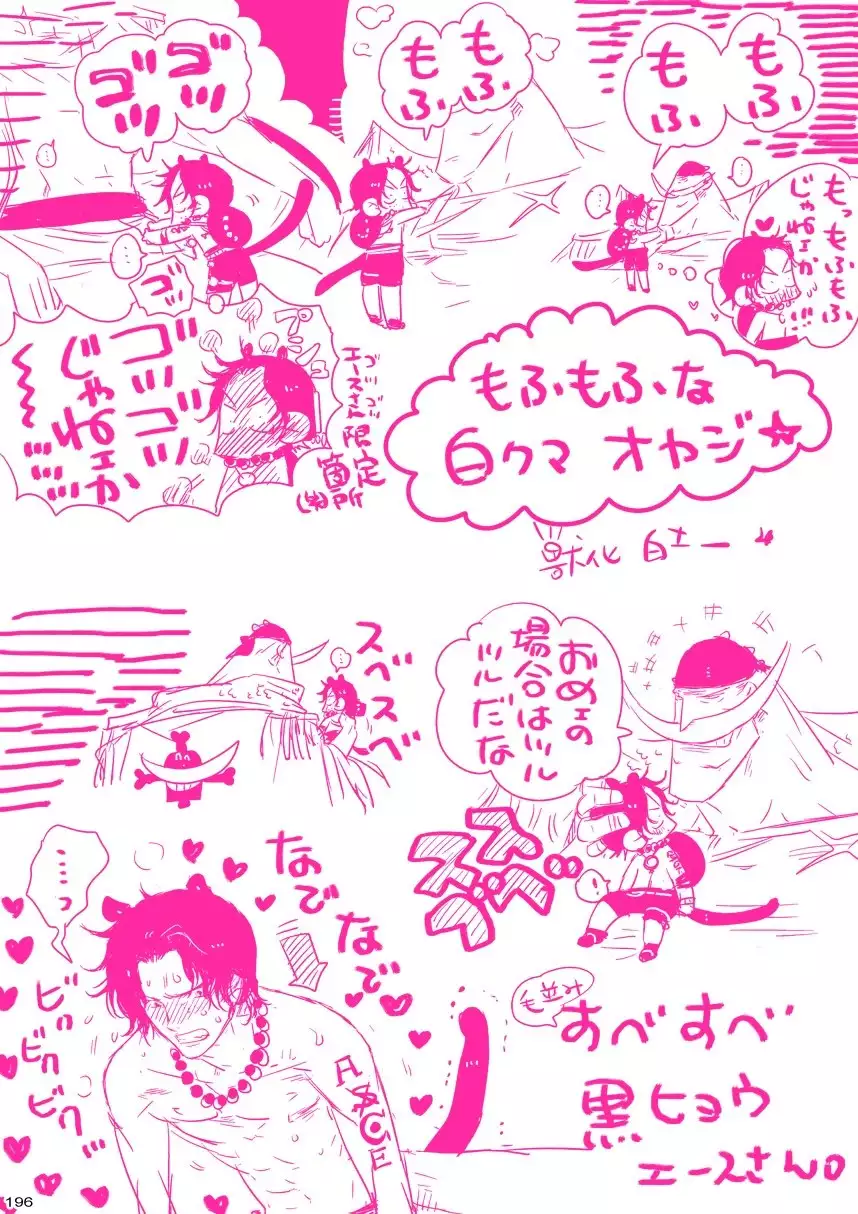 もふ
もふ
もっもふもふ
じゃねェか
…!!!
もふ
もふ
ゴツ
ゴツ
ゴッ
ゴツゴツ
じゃねェか
ゴツゴツ
エースさん限定
箇所
(笑)
もふもふな
白クマ オヤジ☆
獣化 白
おめェの
場合はツル
ツルだな
スベスベ
スベスベ
なでなで
……っ
ビク
ビクビク
ビク
毛並み
すべすべ
黒ヒョウ
エースさん。
ASCE
196